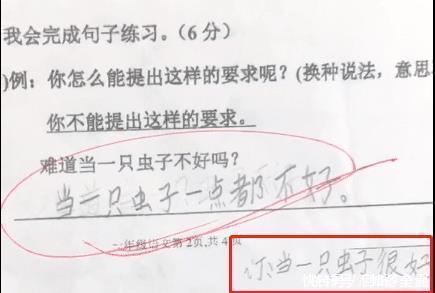 我会完成句子练习。(6分)
)例：你怎么能提出这样的要求呢？(换种说法，意思
你不能提出这样的要求。
难道当一只虫子不好吗？
当一只虫子一点都不好。
年级语文第2页,共4页
当一只虫子很好